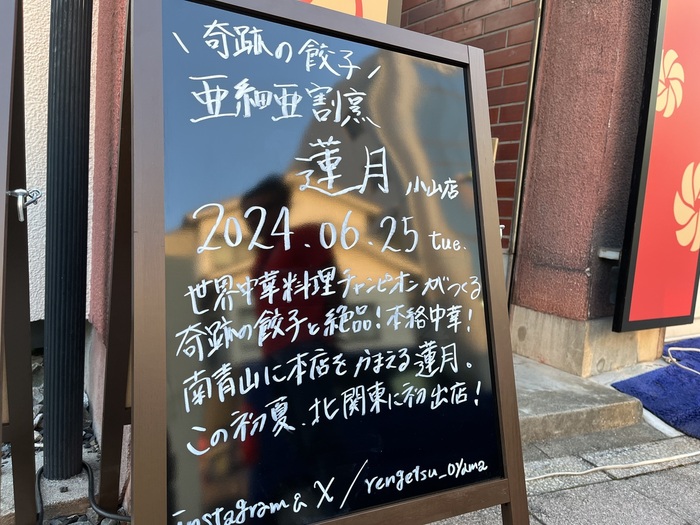 \ 奇跡の餃子 /
亜細亜割烹
蓮月 小山店
2024.06.25 tue.
世界中華料理チャンピオンがつくる
奇跡の餃子と絶品！本格中華！
南青山に本店をかまえる蓮月。
この初夏、北関東に初出店！
instagram & X / rengetsu_oyama